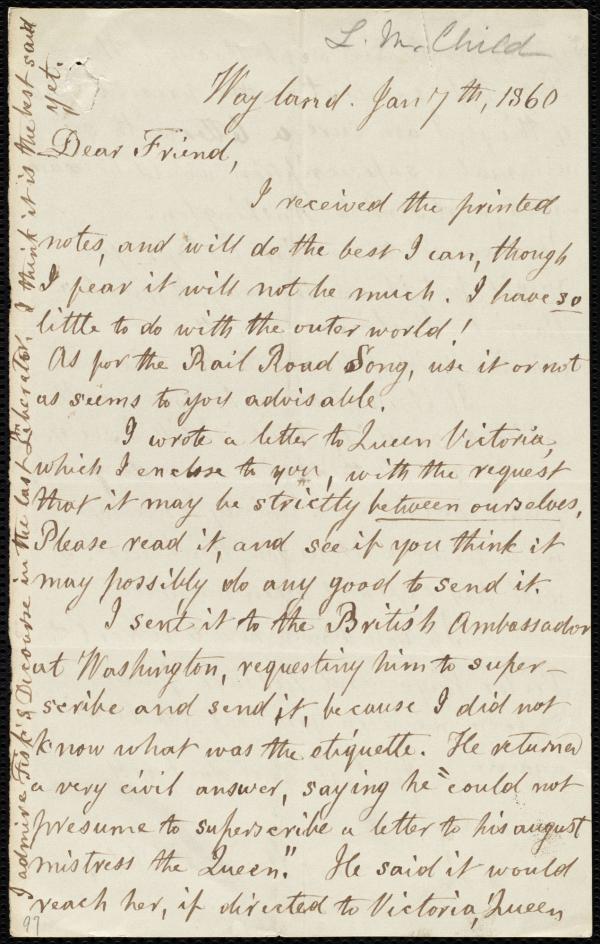 L. M. Child
Wayland. Jan 7th, 1860
Dear Friend,
I received the printed
notes, and will do the best I can, though
I fear it will not be much. I have so
little to do with the outer world!
As for the Rail Road Song, use it or not
as seems to you advisable.
I wrote a letter to Queen Victoria,
which I enclose to you, with the request
that it may be strictly between ourselves.
Please read it, and see if you think it
may possibly do any good to send it.
I sent it to the British Ambassador
at Washington, requesting him to super-
scribe and send it, because I did not
know what was the etiquette. He returned
a very civil answer, saying he "could not
presume to superscribe a letter to his august
mistress the Queen." He said it would
reach her, if directed to Victoria, Queen
97
I admire Fisk's Discourse in the last Liberator. I think it is the best said
yet.